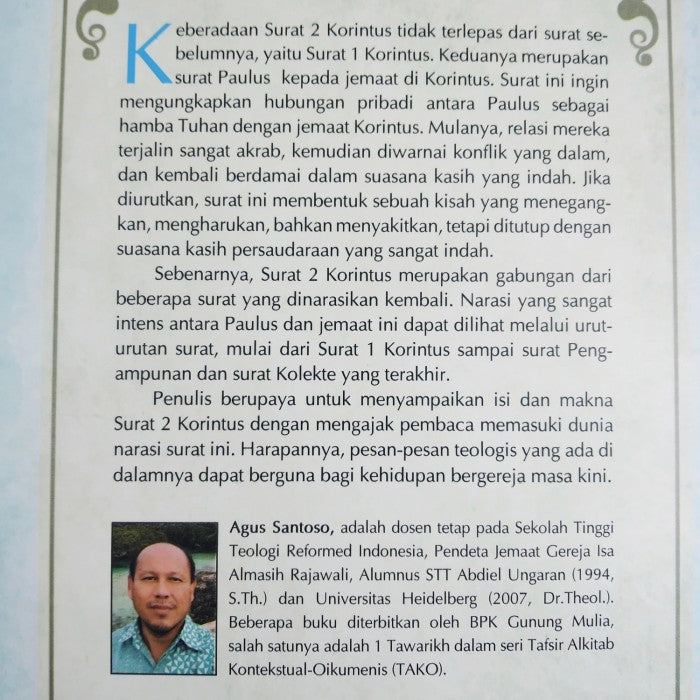 Keberadaan Surat 2 Korintus tidak terlepas dari surat se-
belumnya, yaitu Surat 1 Korintus. Keduanya merupakan
surat Paulus kepada jemaat di Korintus. Surat ini ingin
mengungkapkan hubungan pribadi antara Paulus sebagai
hamba Tuhan dengan jemaat Korintus. Mulanya, relasi mereka
terjalin sangat akrab, kemudian diwarnai konflik yang dalam,
dan kembali berdamai dalam suasana kasih yang indah. Jika
diurutkan, surat ini membentuk sebuah kisah yang menegang-
kan, mengharukan, bahkan menyakitkan, tetapi ditutup dengan
suasana kasih persaudaraan yang sangat indah.
Sebenarnya, Surat 2 Korintus merupakan gabungan dari
beberapa surat yang dinarasikan kembali. Narasi yang sangat
intens antara Paulus dan jemaat ini dapat dilihat melalui urut-
urutan surat, mulai dari Surat 1 Korintus sampai surat Peng-
ampunan dan surat Kolekte yang terakhir.
Penulis berupaya untuk menyampaikan isi dan makna
Surat 2 Korintus dengan mengajak pembaca memasuki dunia
narasi surat ini. Harapannya, pesan-pesan teologis yang ada di
dalamnya dapat berguna bagi kehidupan bergereja masa kini.
Agus Santoso, adalah dosen tetap pada Sekolah Tinggi
Teologi Reformed Indonesia, Pendeta Jemaat Gereja Isa
Almasih Rajawali, Alumnus STT Abdiel Ungaran (1994,
S.Th.) dan Universitas Heidelberg (2007, Dr.Theol.).
Beberapa buku diterbitkan oleh BPK Gunung Mulia,
salah satunya adalah 1 Tawarikh dalam seri Tafsir Alkitab
Kontekstual-Oikumenis (TAKO).